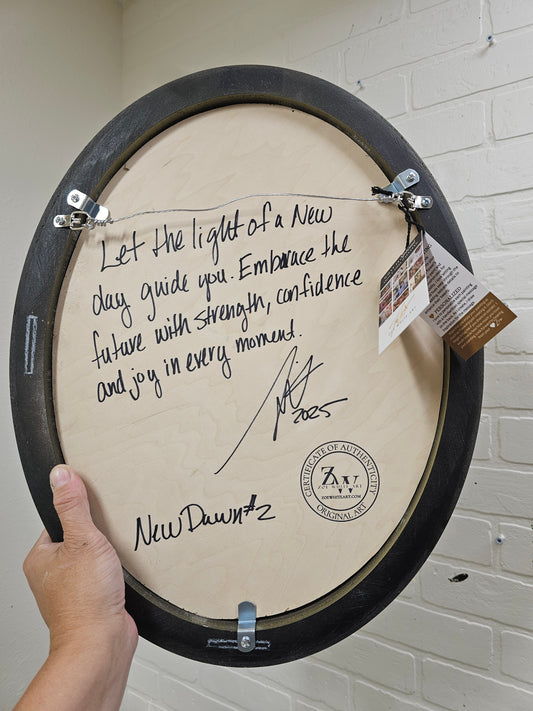 Let the light of a New
day guide you. Embrace the
future with strength, confidence
and joy in every moment.
2025
CERTIFICATE OF AUTHENTICITY
ZW
ZOE WHITE ART
ZOEWHITEART.COM
ORIGINAL ART
New Dawn #2